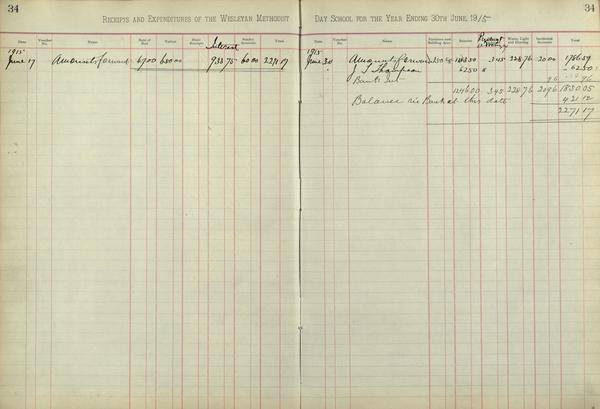 34
Receipts and Expenditures of the Wesleyan Methodist
Date Voucher No. Name Rent of Hall Tuition Music Receipts Interest Sundry Accounts Total
1915
June 17 Amounts forward 67 00 650 00 933 75 60 00 2271 17
Day School for the Year Ending 30th June, 1915
34
Date Voucher No. Name Furniture and Building Acct. Salaries Water, Light and Heating Incidental Accounts Total
1915
June 30 Amounts forward 3 45 228 76 20 00 1766 59
J T Thompson 62 50 62 50
Bank Int 96 96
1246 00 3 45 228 76 20 96 1830 05
Balance in Bank at this date 421 12
2271 17